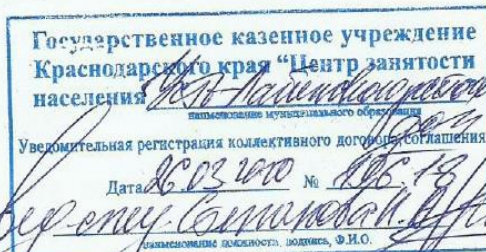 Государственное казенное учреждение
Краснодарского края "Центр занятости
населения Усть-Лабинского района
наименование муниципального образования
Уведомительная регистрация коллективного договора, соглашения
Дата 26.03.2020 №
Вед. спец.
наименование должности, подпись, Ф.И.О.